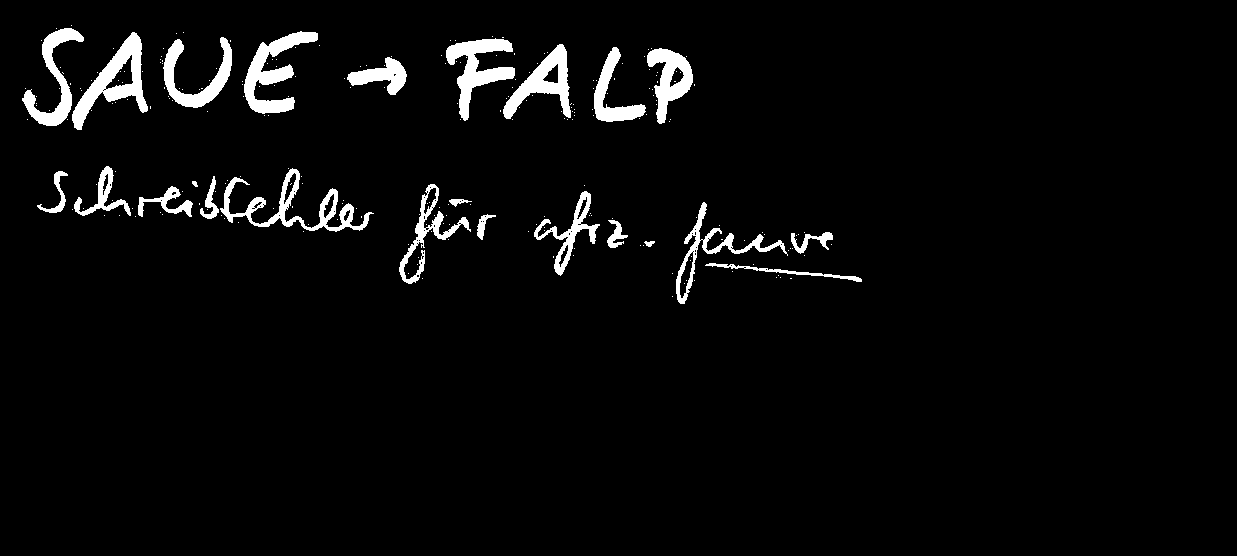 SAUE → FALP
Schreibfehler für afrz. fauve